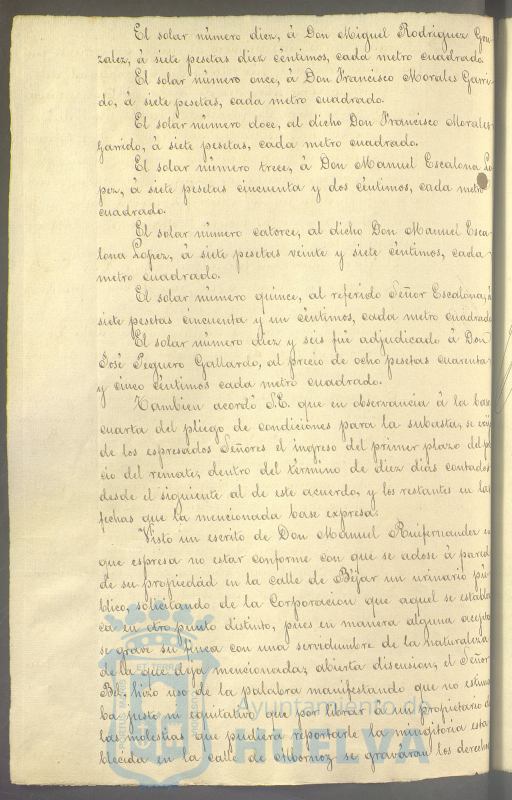 El solar número diez, á Don Miguel Rodriguez Gon-
zalez, á siete pesetas diez céntimos, cada metro cuadrado.
El solar número once, á Don Francisco Morales Garri-
do, á siete pesetas, cada metro cuadrado.
El solar número doce, al dicho Don Francisco Morales
Garrido, á siete pesetas, cada metro cuadrado.
El solar número trece, á Don Manuel Escalona Lo
pez, á siete pesetas cincuenta y dos céntimos, cada metro
cuadrado.
El solar número catorce, al dicho Don Manuel Esca-
lona Lopez, á siete pesetas veinte y siete céntimos, cada
metro cuadrado.
El solar número quince, al referido Señor Escalona, á
siete pesetas cincuenta y un céntimos, cada metro cuadrado
El solar número diez y seis fué adjudicado á Don
José Peguero Gallardo, al precio de ocho pesetas cuarenta
y cinco céntimos cada metro cuadrado.
Tambien acordó S.E. que en observancia á la base
cuarta del pliego de condiciones para la subasta, se exij
de los espresados Señores el ingreso del primer plazo del p
cio del remate, dentro del término de diez dias contados
desde el siguiente al de este acuerdo, y los restantes en las
fechas que la mencionada base expresa.
Visto un escrito de Don Manuel Ruifernandez en
que espresa no estar conforme con que se adose á pared
de su propiedad en la calle de Béjar un urinario pú-
blico, solicitando de la Corporacion que aquel se establez
ca en otro punto distinto, pues en manera alguna acepta
se grave su finca con una servidumbre de la naturaleza
de la que deja mencionada; abierta discusion, el Señor
Bel hizo uso de la palabra manifestando que no estima
ba justo ni equitativo que por librar á un propietario de
las molestias que pudiera reportarle la mingitoria esta
blecida en la calle de Albornoz se gravaran los derechos
Ayuntamiento de
HUELVA